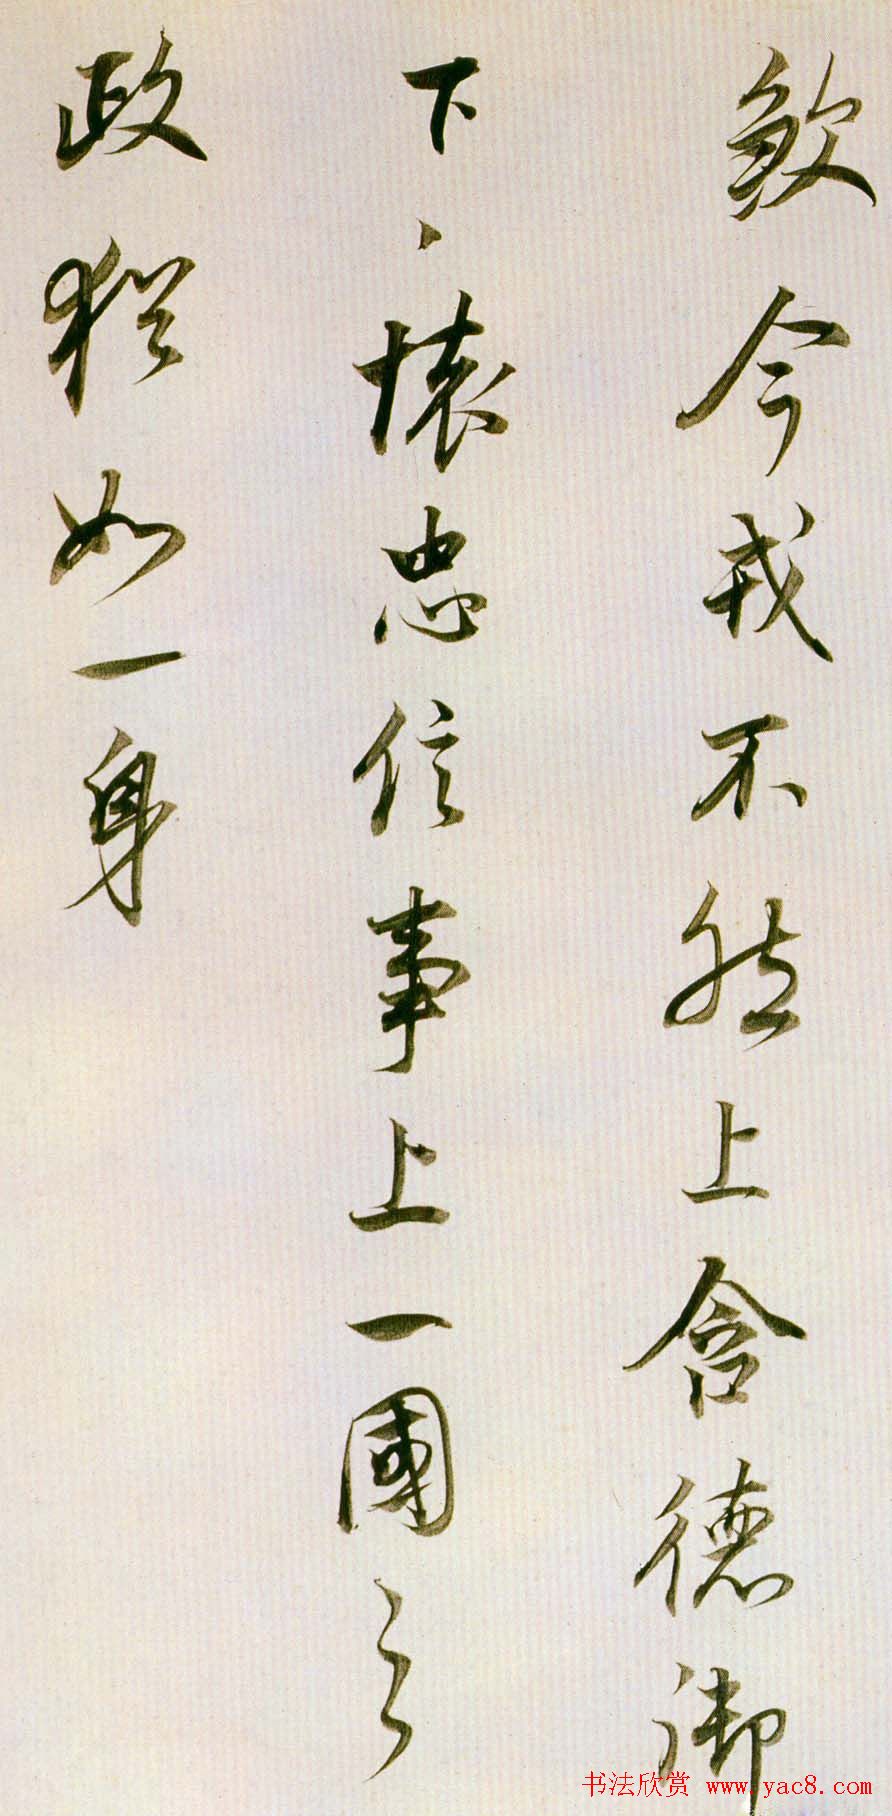 今戎不然上含德御
下、懷忠信事上一國之
政猶如一身
书法欣赏 www.yac8.com